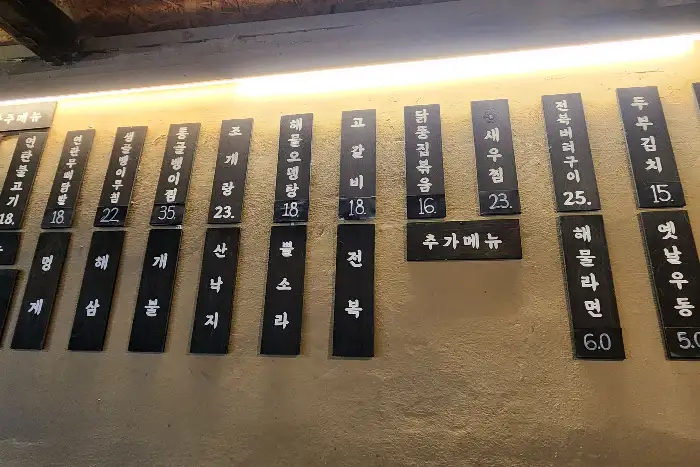 연탄불고기 18.
18
22
통골뱅이찜 35
조개탕 23.
해물오뎅탕 18
고갈비 18.
닭똥집볶음 16
새우찜 23.
전복버터구이 25.
두부김치 15.
멍게
해삼
개불
산낙지
뿔소라
전복
추가메뉴
해물라면 6.0
옛날우동 5.0